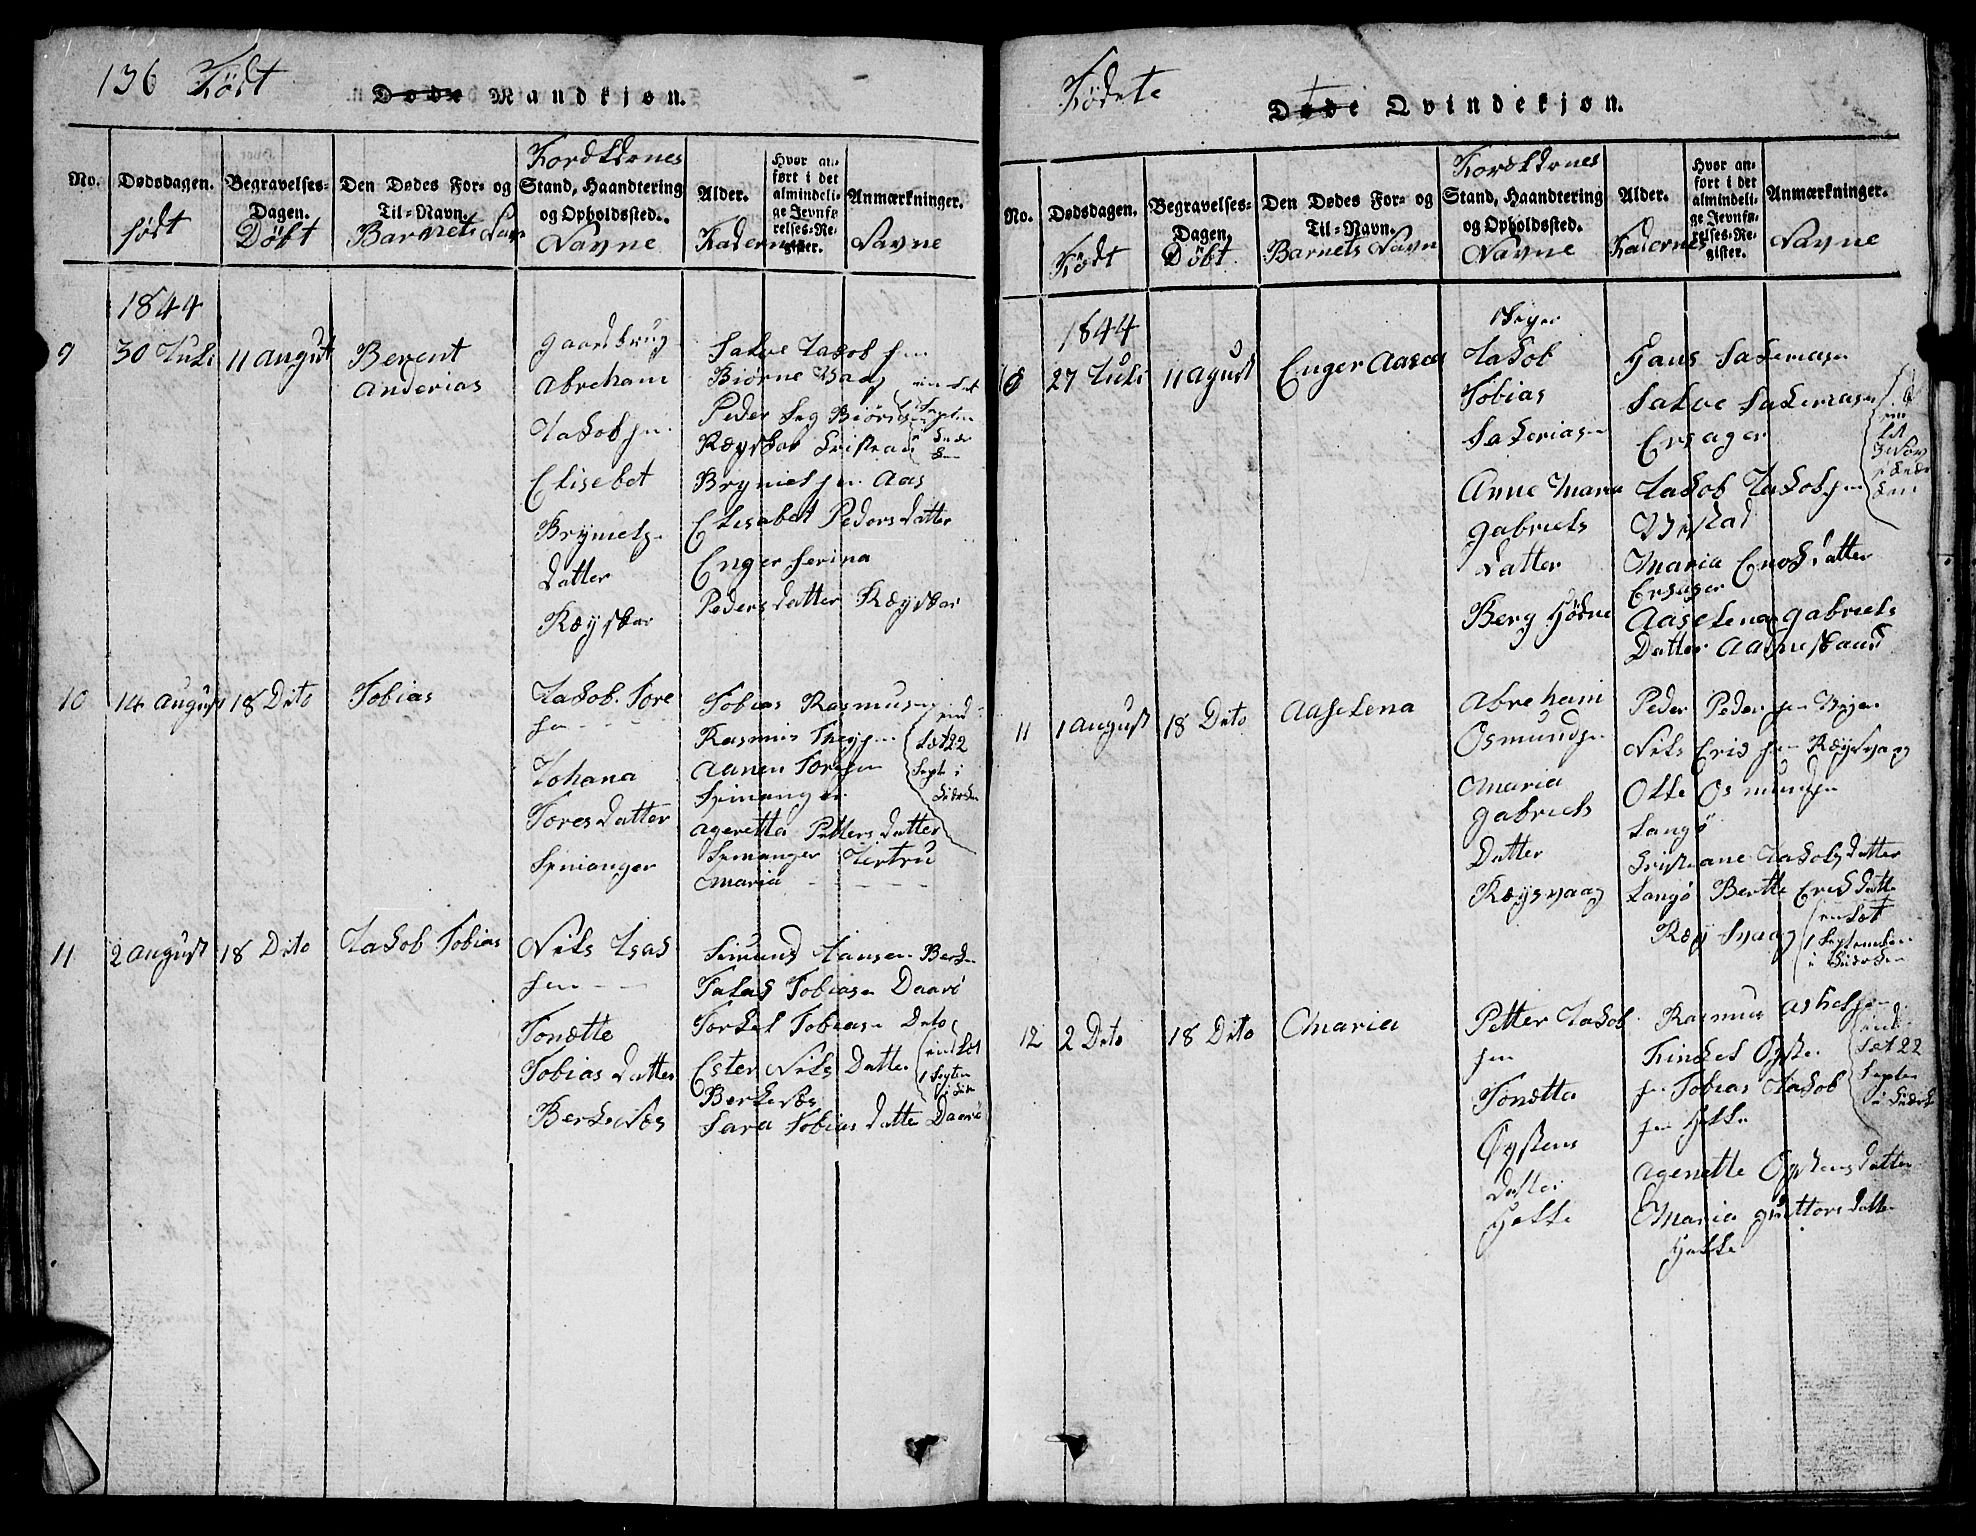 136 Födt
Døde Mandkjøn.
No.
Dødsdagen.
födt
Begravelses-
Dagen.
Döbt
Den Dødes For- og
Til-Navn.
Barnets Navn
Foræld​rnes
Stand, Haandtering
og Opholdssted.
Navne
Alder.
Faderne
Hvor an-
ført i det
almindeli-
ge Jevnfø-
relses-Re-
gister.
Anmærkninger.
Navne
1844
9
30 Juli
11 august
Berent
Anderias
gaardbrug
Abreham
Jakobsen
Elisebet
Brynels
datter
Røyskar
Salve Jakobsen
Biørnevaag
Peder Seg Biørn
Røyskar Kristian
Brynielsen Aas
Elisabet Pedersdatter
Enger Serina
Pedersdatter Røyskar
10
14 August
18 Dito
Tobias
Jakob Tore
sen
Johana
Toresdatter
Spinanger
Tobias Rasmusen
Rasmus Theysen
Aanen Toresen
Spinanger
Ageretta Pettersdatter
Spinanger Jertru
Maria
ind
sæt 22
Sept i
Kierken
11
2 August
18 Dito
Jakob Tobias
Nils Isak
sen
Tonette
Tobiasdatter
Berkenes
Simund Hansen Berke
Talak Tobiasen Daarö
Torkel Tobiasen Dito
Ester Nilsdatter
Berkenes
Sara Tobiasdatter Daarö
ind sæt
1 Septem
i Kir
Födete
Døde Qvindekjøn.
No.
Dødsdagen.
Födt
Begravelses-
Dagen.
Döbt
Den Dødes For- og
Til-Navn.
Barnets Navn
Forældrnes
Stand, Haandtering
og Opholdssted.
Navne
Alder.
Fadernes
Hvor an-
ført i det
almindeli-
ge Jevnfø-
relses-Re-
gister.
Anmærkninger.
Navne
1844
10
27 Juli
11 Agust
Enger Aase
Jakob
Tobias
Sakeriasen
Anne Maria
Gabriels
datter
Berg Hödne
Hans Sakeriasen
Salve Sakeriasen
Ersager
Jakob Jakobsen
Maria Enokdatter
Ersager
Aaselena Gabriels
Datter
11
1 August
18 Dito
Aaselena
Abreham
Osmundsen
Maria
Gabriels
Datter
Røysvaag
Peder Pedersen
Nils Eriksen Røysvaag
Olle Osmundsen
Langö
Kristiane Jakobsdatter
Langö Bertte Erikdatte
Røysvaag
ensæt
1 September
i Kierken
12
2 Dito
18 Dito
Maria
Petter Jakob
sen
Tonætta
Øystens
datter
Helle
Rasmus Askelsen
Trinkel Øysten
sen Tobias Jakob
sen Helle
Agenette Øystensdatter
Maria Guttorsdatte
Helle
ind
sæt 22
Septem
i Kierke